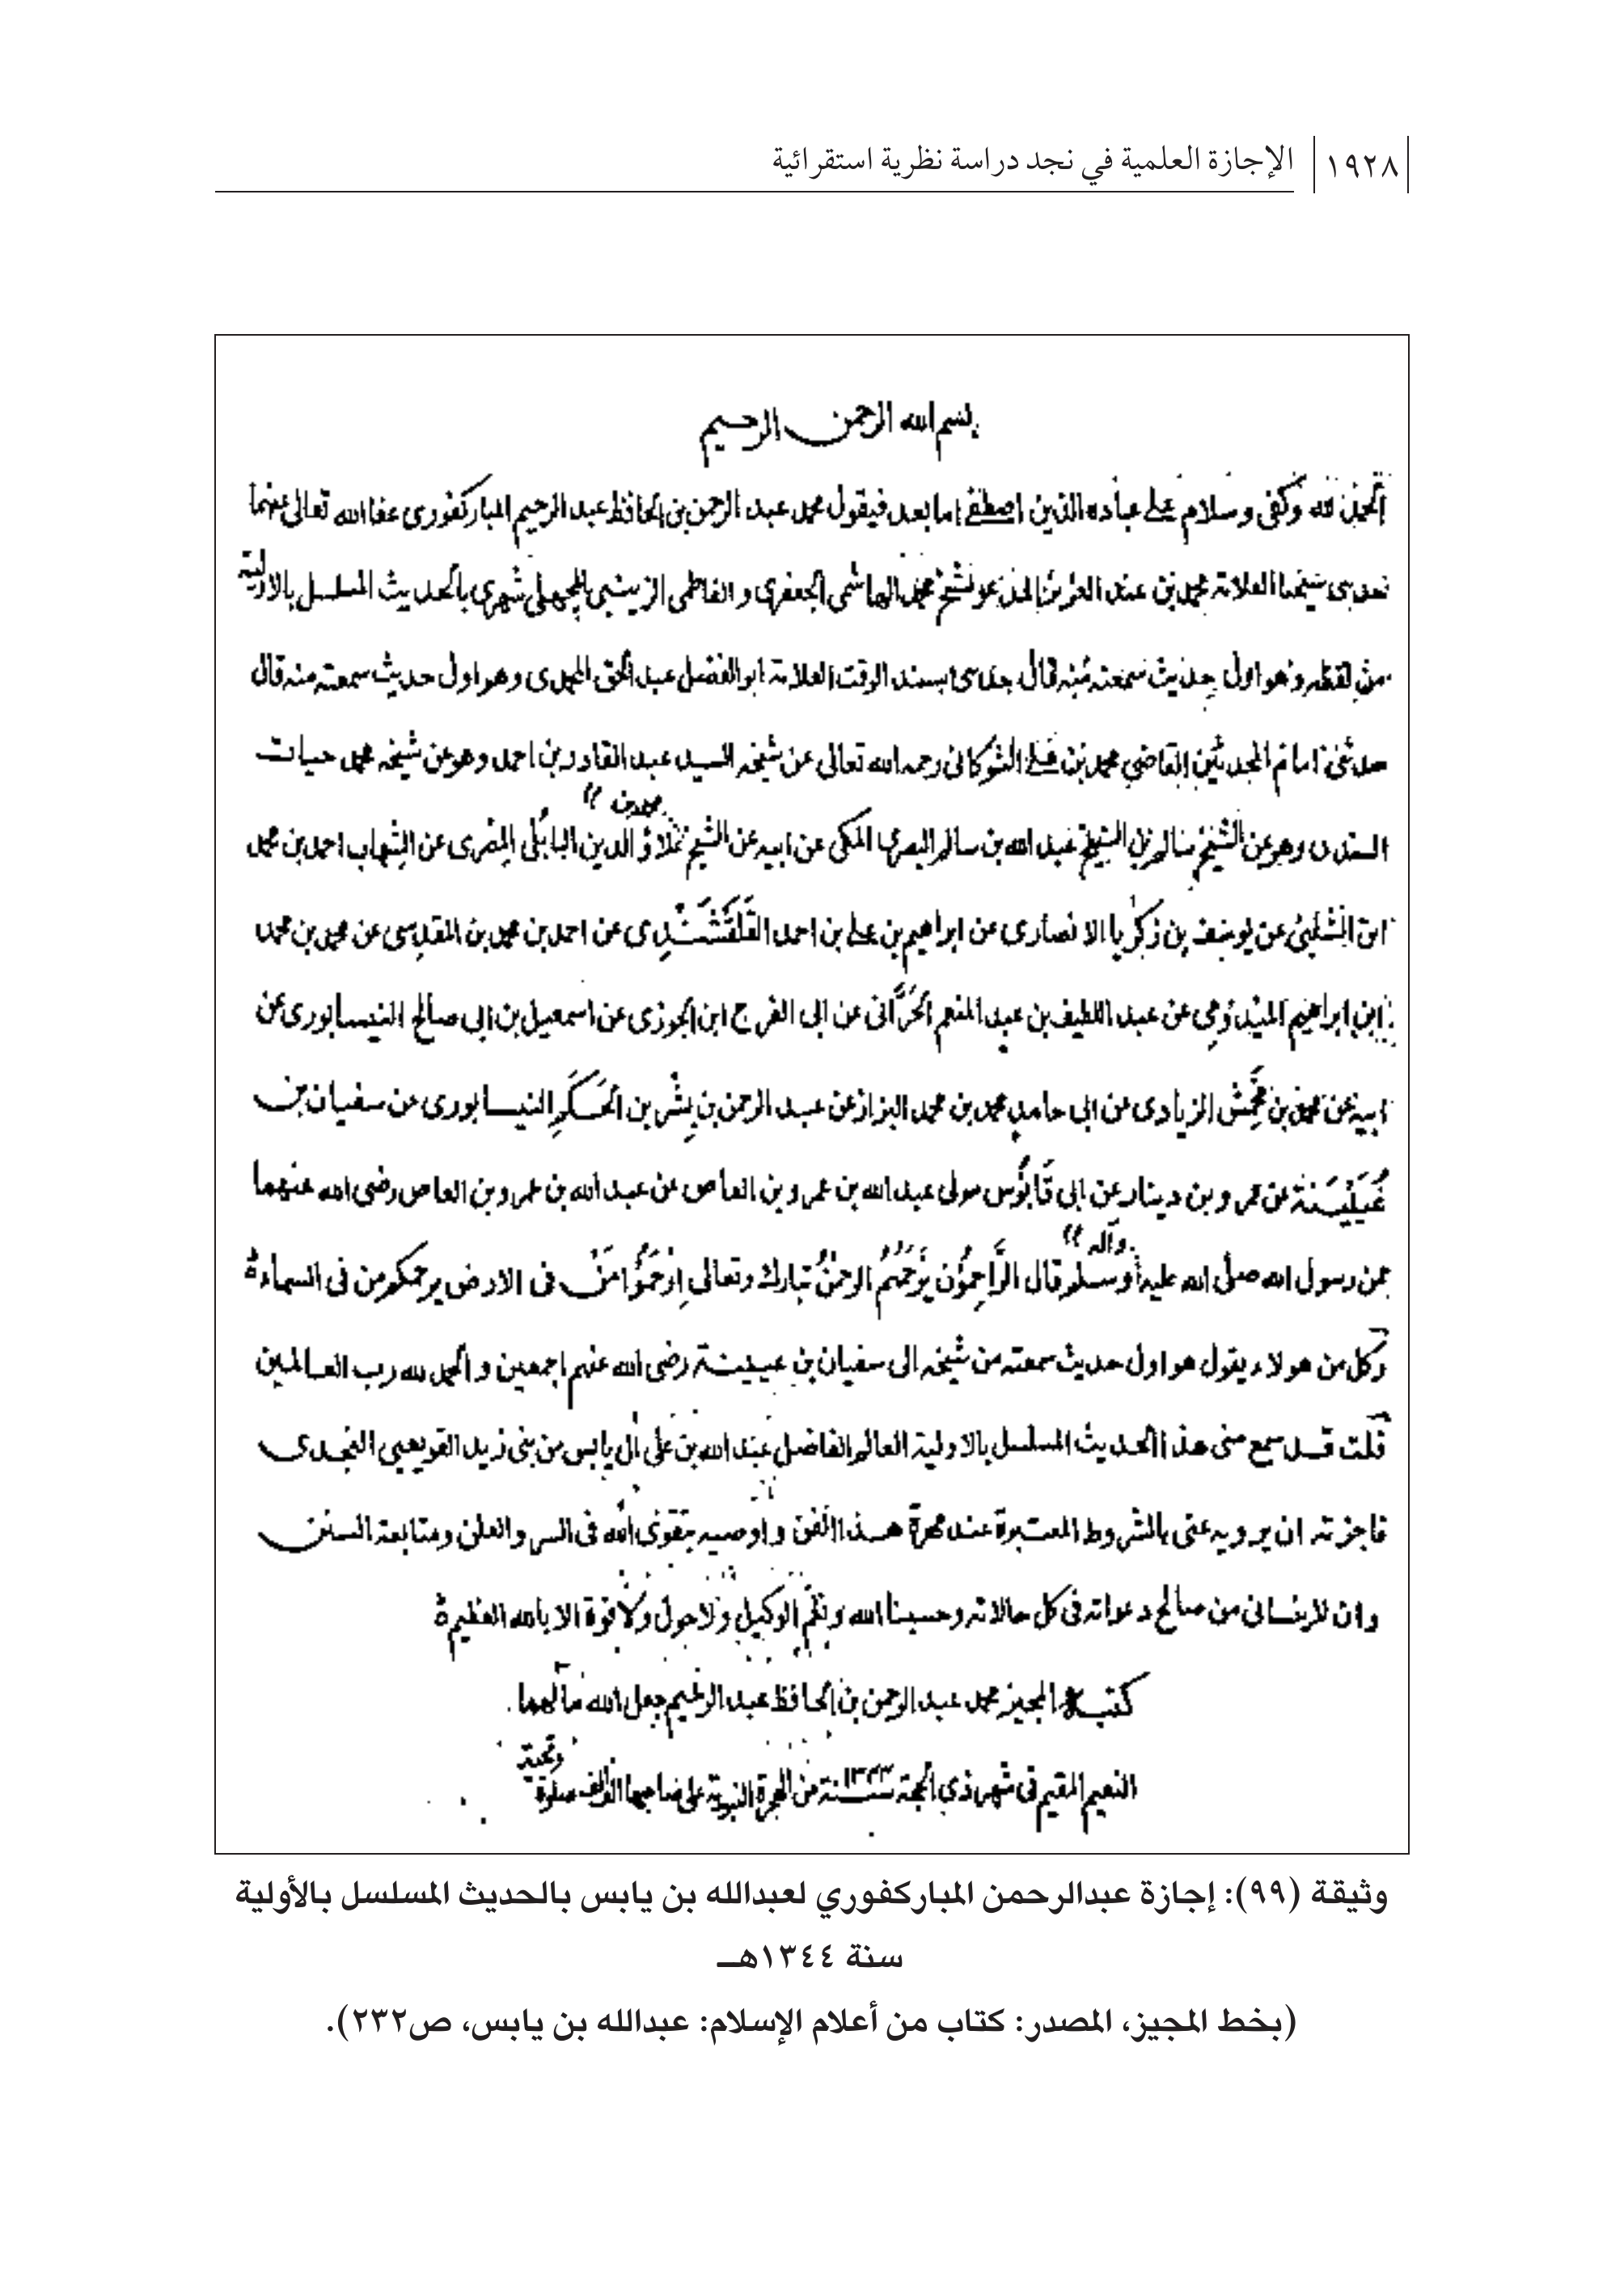 ١٩٢٨ الإجازة العلمية في نجد دراسة نظرية استقرائية
بسم الله الرحمن الرحيم
الحمد لله وكفى وسلام على عباده الذين اصطفى اما بعد فيقول محمد عبد الرحمن بن الحافظ عبد الرحيم المباركفورى عفا الله تعالى عنهما
شيخنا العلامة محمد بن عبد العزيز المدعو بشيخ محمد الهاشمى الجعفرى والفاطمى الزينبى المچهلى شهرى بالحديث المسلسل بالاولية
من لفظه وهو اول حديث سمعته منه قال حدثنى بسند الوقت العلامة ابو الفضل عبد الحق المحمدى وهو اول حديث سمعته منه قال
حدثنى امام المحدثين القاضي محمد بن على الشوكانى رحمه الله تعالى عن شيخه السيد عبد القادر بن احمد وهو عن شيخه محمد حيات
السندى وهو عن الشيخ سالم بن الشيخ عبد الله بن سالم البصرى المكى عن ابيه عن الشيخ محمد بن علاؤ الدين البابلى المصرى عن الشهاب احمد بن محمد
ابن الشلبى عن يوسف بن زكريا الانصارى عن ابراهيم بن على بن احمد القلقشندى عن احمد بن محمد بن المقدسى عن محمد بن محمد
ابن ابراهيم الميدومى عن عبد اللطيف بن عبد المنعم الحرّانى عن ابى الفرج ابن الجوزى عن اسمعيل بن ابى صالح النيسابورى عن
ابيه عن محمد بن محمش الزيادى عن ابى حامد محمد بن محمد البزاز عن عبد الرحمن بن بشر بن الحكم النيسابورى عن سفيان بن
عُيَيْنَة عن عمرو بن دينار عن ابى قابُوس مولى عبد الله بن عمرو بن العاص عن عبد الله بن عمرو بن العاص رضى الله عنهما
عن رسول الله صلى الله عليه وآله وسلم قال الرَّاحِمُوْن يَرْحَمُهُم الرحمنُ تبارك وتعالى اِرْحَمُوْا مَنْ فى الارض يرحمكم من فى السماء ة
وكل من هولاء يقول هو اول حديث سمعته من شيخه الى سفيان بن عيينة رضى الله عنهم اجمعين والحمد لله رب العالمين
قلت قد سمع منى هذا الحديث المسلسل بالاولية العالم الفاضل عبد الله بن على آل يابس من بنى زيد القويعيى النجدى
فاجزته ان يرويه عنى بالشروط المعتبرة عند مهرة هذا الفن و اوصيه بتقوى الله فى السر والعلن ومتابعة السنن
وان لا ينسانى من صالح دعواته فى كل حالاته وحسبنا الله ونعم الوكيل ولا حول ولا قوة الا بالله العظيم ة
كتبه المجيز محمد عبد الرحمن بن الحافظ عبد الرحيم جعل الله مآلهما
النعيم المقيم فى شهر ذي الحجة سنة من الهجرة النبوية على صاحبها الف الف صلوة وتحية
وثيقة (٩٩): إجازة عبدالرحمن المباركفوري لعبدالله بن يابس بالحديث المسلسل بالأولية
سنة ١٣٤٤هـ
(بخط المجيز، المصدر: كتاب من أعلام الإسلام: عبدالله بن يابس، ص٢٣٢).